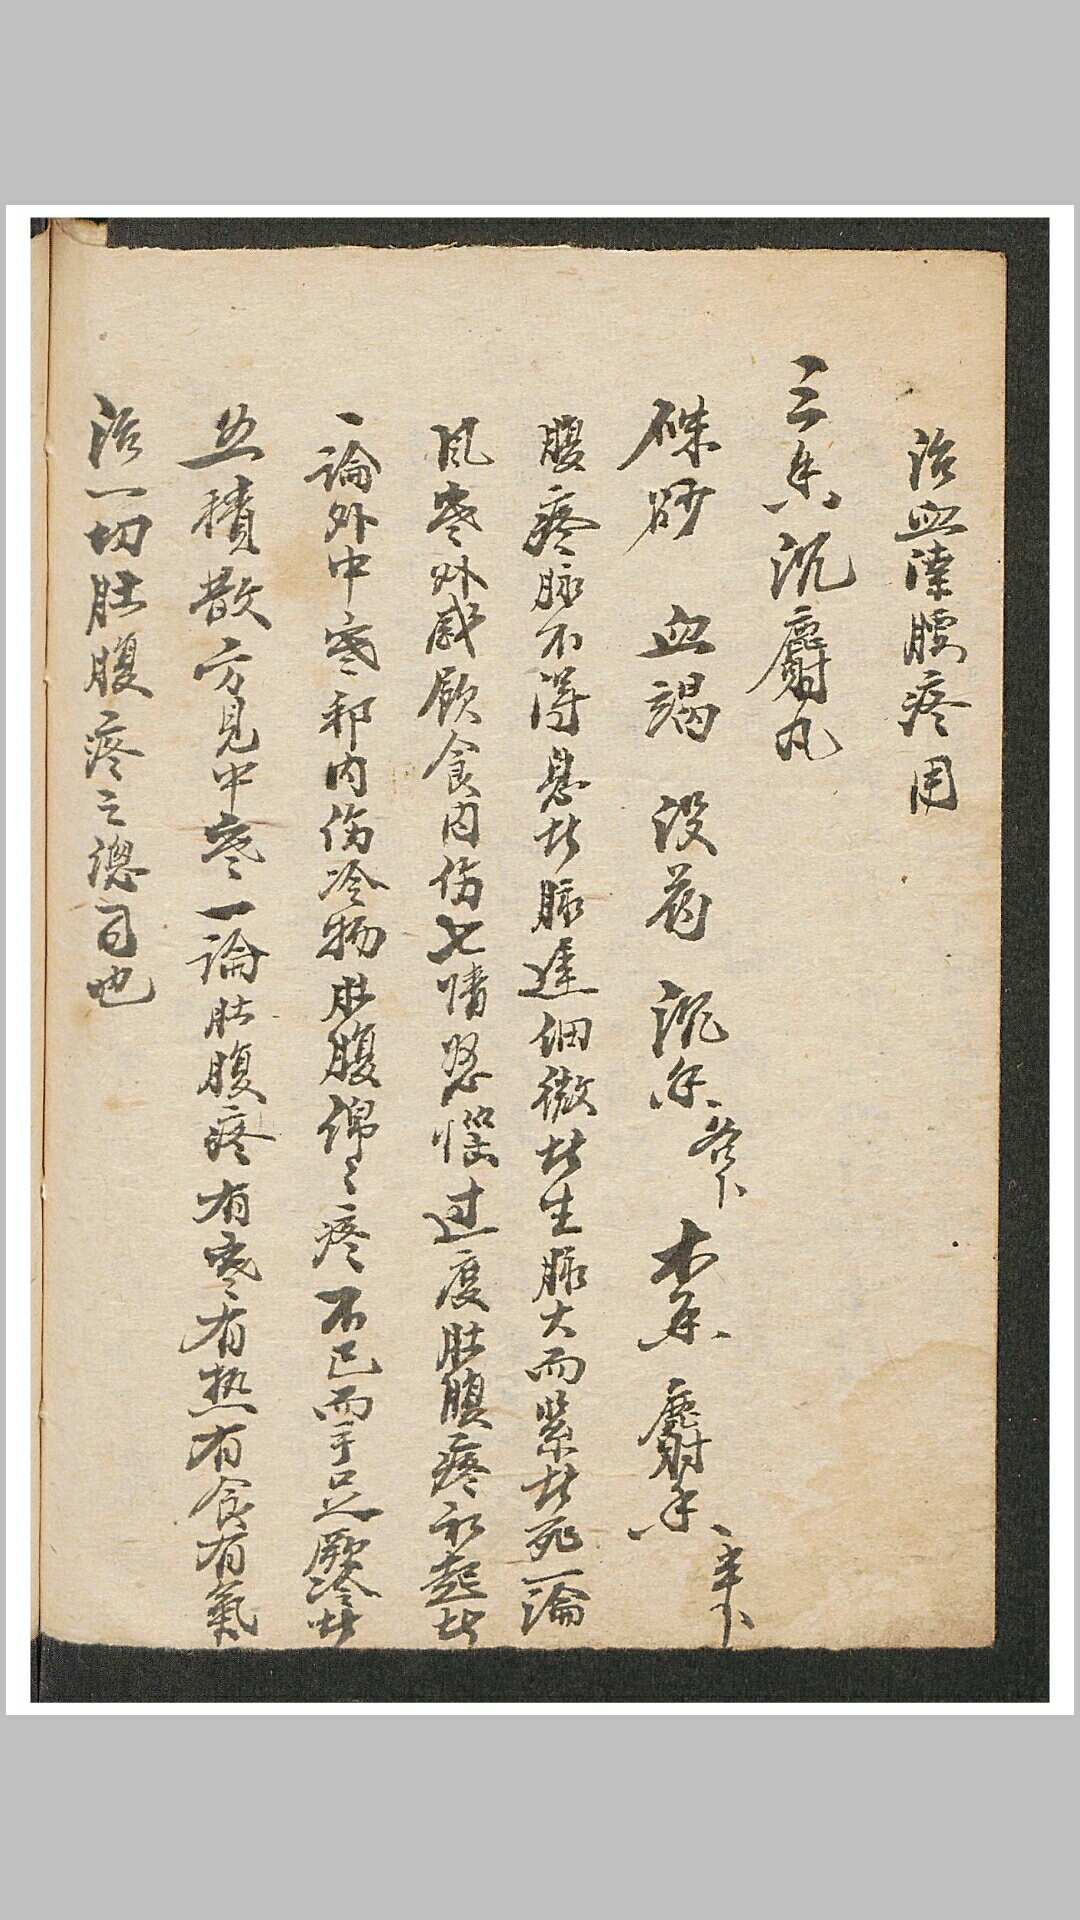 治血滞腰疼用
三香沉麝丸
硃砂 血竭 没药 沉香 木香 麝香
腹疼脉不得息者脉迟細微者生脉大而緊者死一論
風寒外感飲食內伤七情怒惱过度肚腹疼初起者
一論外中寒邪內伤冷物肚腹綿々疼不已而手足厥冷者
五積散方見中寒一論肚腹疼有寒有热有食有氣
治一切肚腹疼之總司也